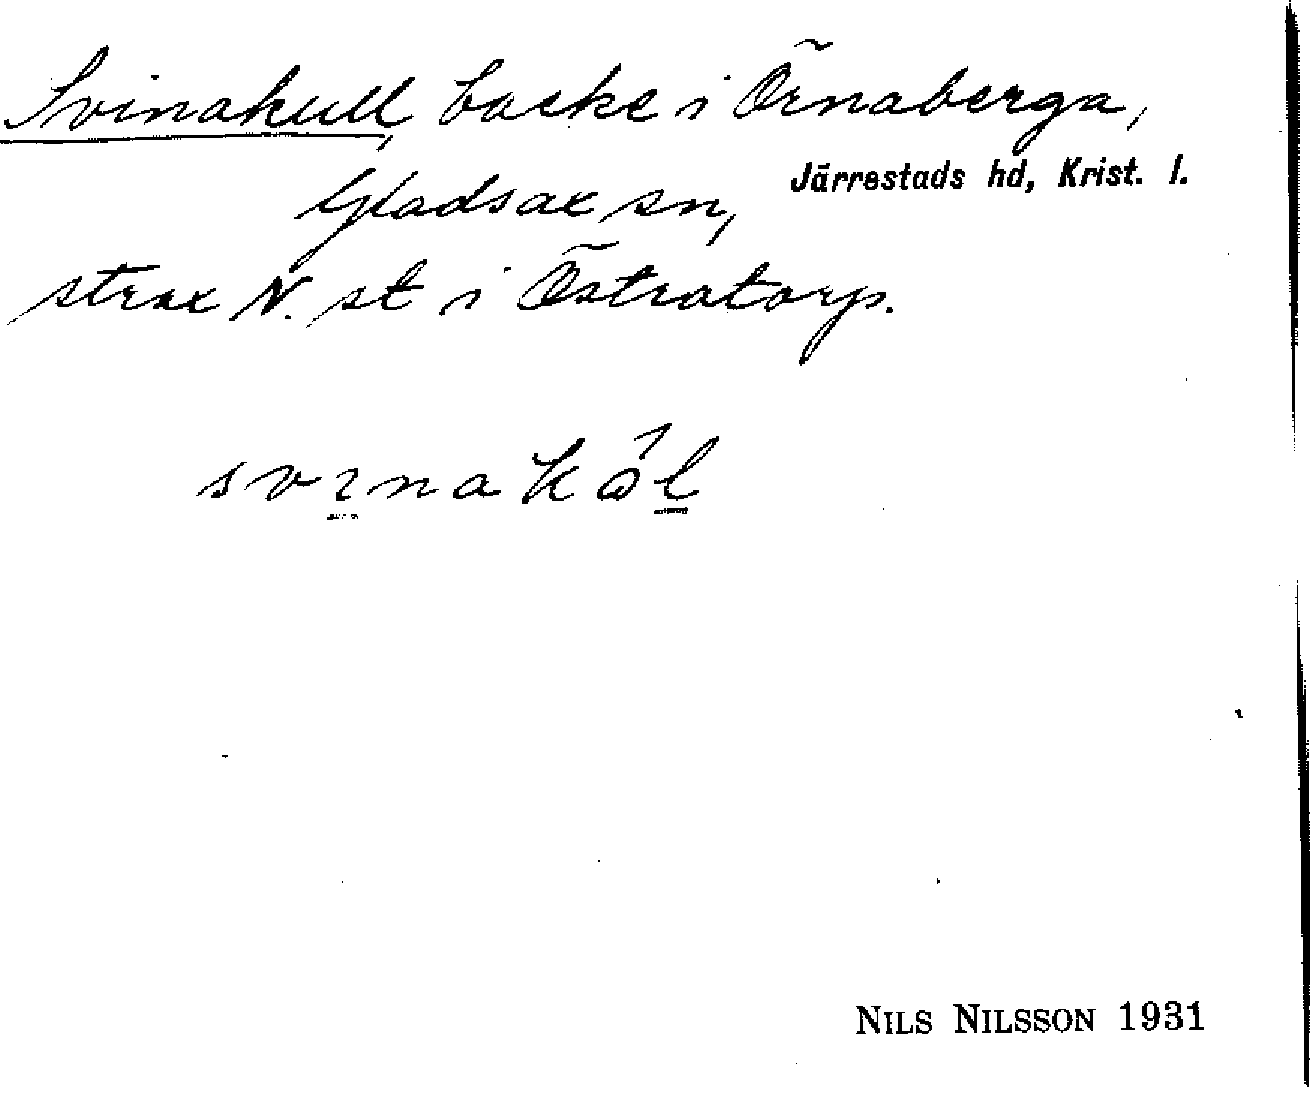 Svinakull, backe i Örnaberga,
Gladsax sn, Järrestads hd, Krist. l.
strax N. st i Östratorp.
svınakǻl
NILS NILSSON 1931